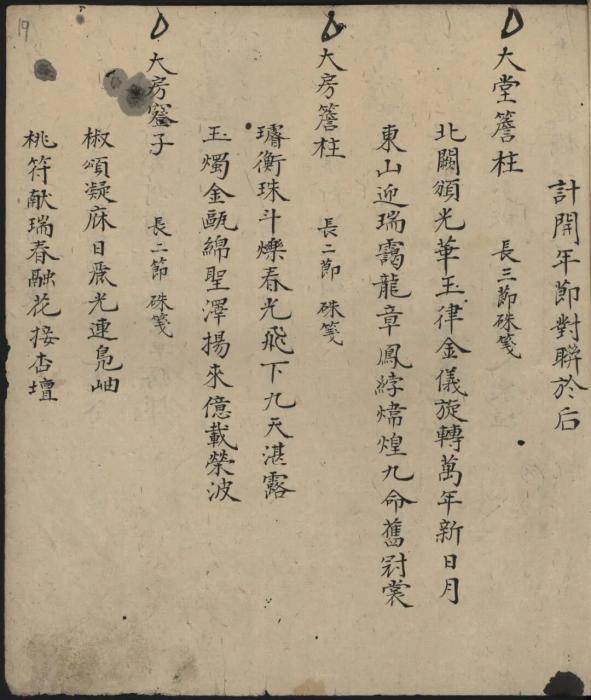 計開年節對聯於后
大堂簷柱 長三節硃箋
北闕頒光華玉律金儀旋轉萬年新日月
東山迎瑞靄龍章鳳綍煒煌九命舊冠裳
大房簷柱 長二節硃箋
璿衡珠斗爍春光飛下九天湛露
玉燭金甌綿聖澤揚來億載榮波
大房窻子 長二節硃箋
椒頌凝庥日麗光連鳧岫
桃符献瑞春融花接杏壇
19